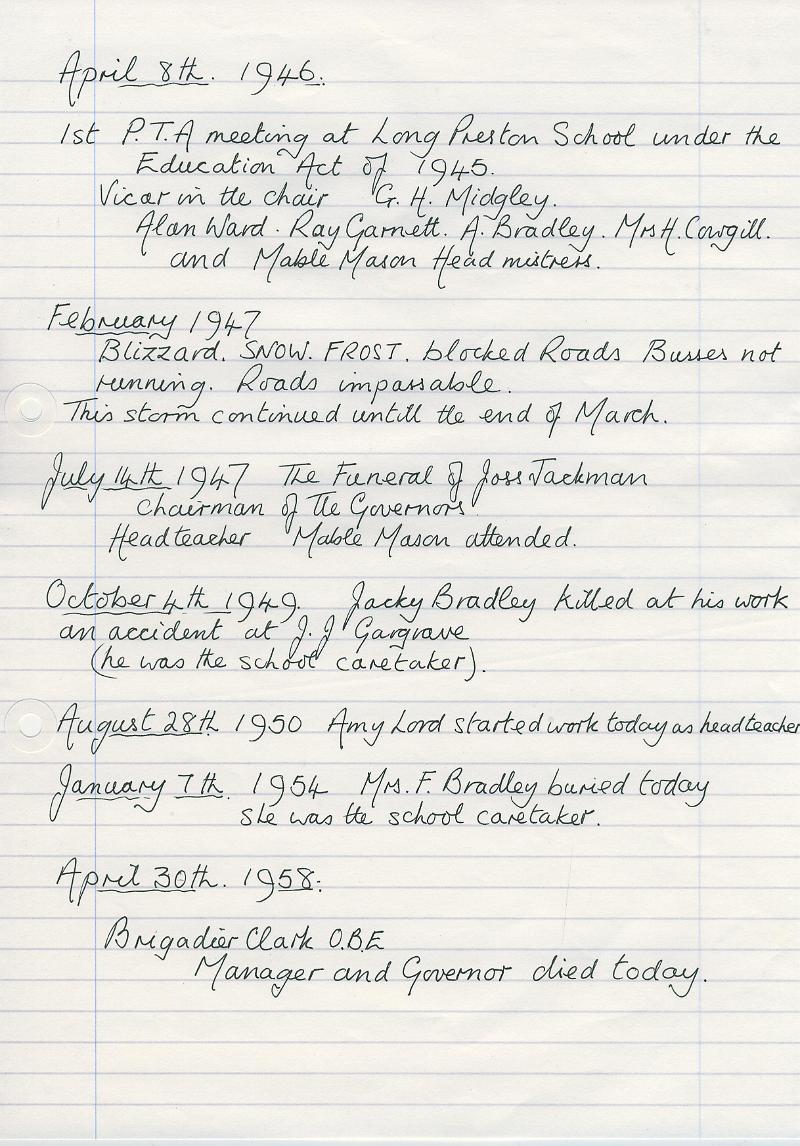 April 8th. 1946.
1st P.T.A meeting at Long Preston School under the
Education Act of 1945.
Vicar in the chair G. H. Midgley.
Alan Ward. Ray Garnett. A. Bradley. Mrs H. Cowgill.
and Mable Mason Head mistress.
February 1947
Blizzard. SNOW. FROST. blocked Roads Busses not
running. Roads impassable.
This storm continued untill the end of March.
July 14th 1947 The Funeral of Joss Jackman
Chairman of The Governors
Headteacher Mable Mason attended.
October 4th 1949. Jacky Bradley killed at his work
an accident at J.J Gargrave
(he was the school caretaker).
August 28th 1950 Amy Lord started work today as headteacher
January 7th. 1954 Mrs. F. Bradley buried today
she was the school caretaker.
April 30th. 1958.
Brigadier Clark O.B.E
Manager and Governor died today.